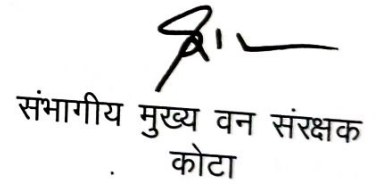 संभागीय मुख्य वन संरक्षक
कोटा